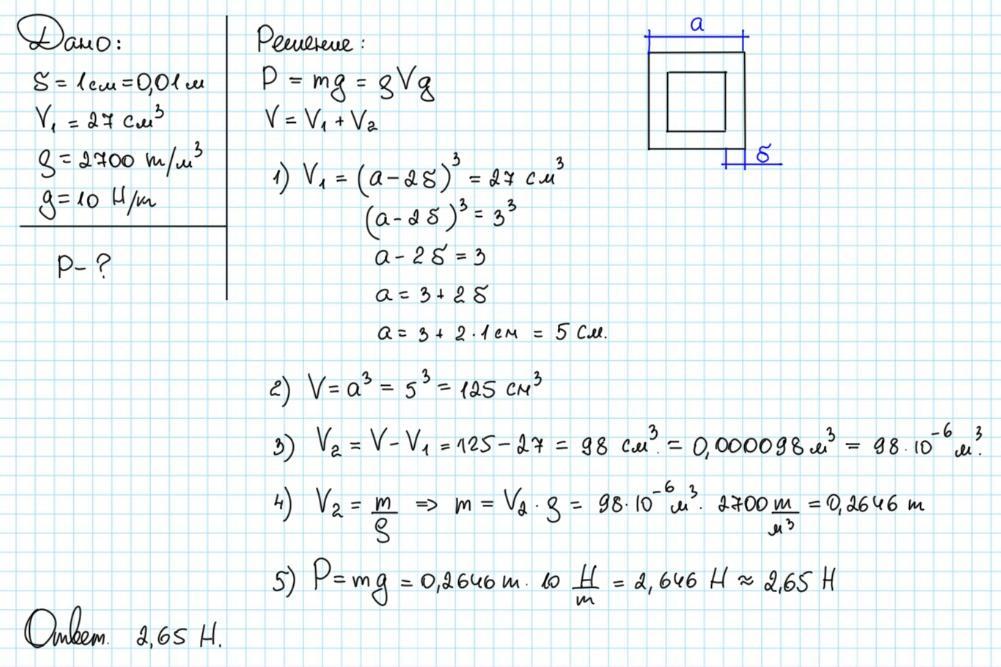 Дано:
δ = 1 см = 0,01 м
V₁ = 27 см³
ρ = 2700 m/м³
g = 10 Н/m
P - ?
Решение:
P = mg = ρVg
V = V₁ + V₂
1) V₁ = (a - 2δ)³ = 27 см³
(a - 2δ)³ = 3³
a - 2δ = 3
a = 3 + 2δ
a = 3 + 2 · 1 см = 5 см.
a
δ
2) V = a³ = 5³ = 125 см³
3) V₂ = V - V₁ = 125 - 27 = 98 см³. = 0,000098 м³ = 98 · 10⁻⁶ м³.
4) V₂ = m/ρ ⇒ m = V₂ · ρ = 98 · 10⁻⁶ м³ · 2700 m/м³ = 0,2646 m
5) P = mg = 0,2646 m · 10 Н/m = 2,646 Н ≈ 2,65 Н
Ответ. 2,65 Н.